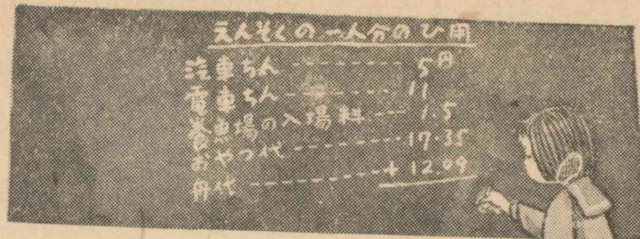 えんそくの一人分のひ用
汽車ちん-----------5円
電車ちん-----------11
養魚場の入場料---1.5
おやつ代-----------17.35
舟代-----------+12.09